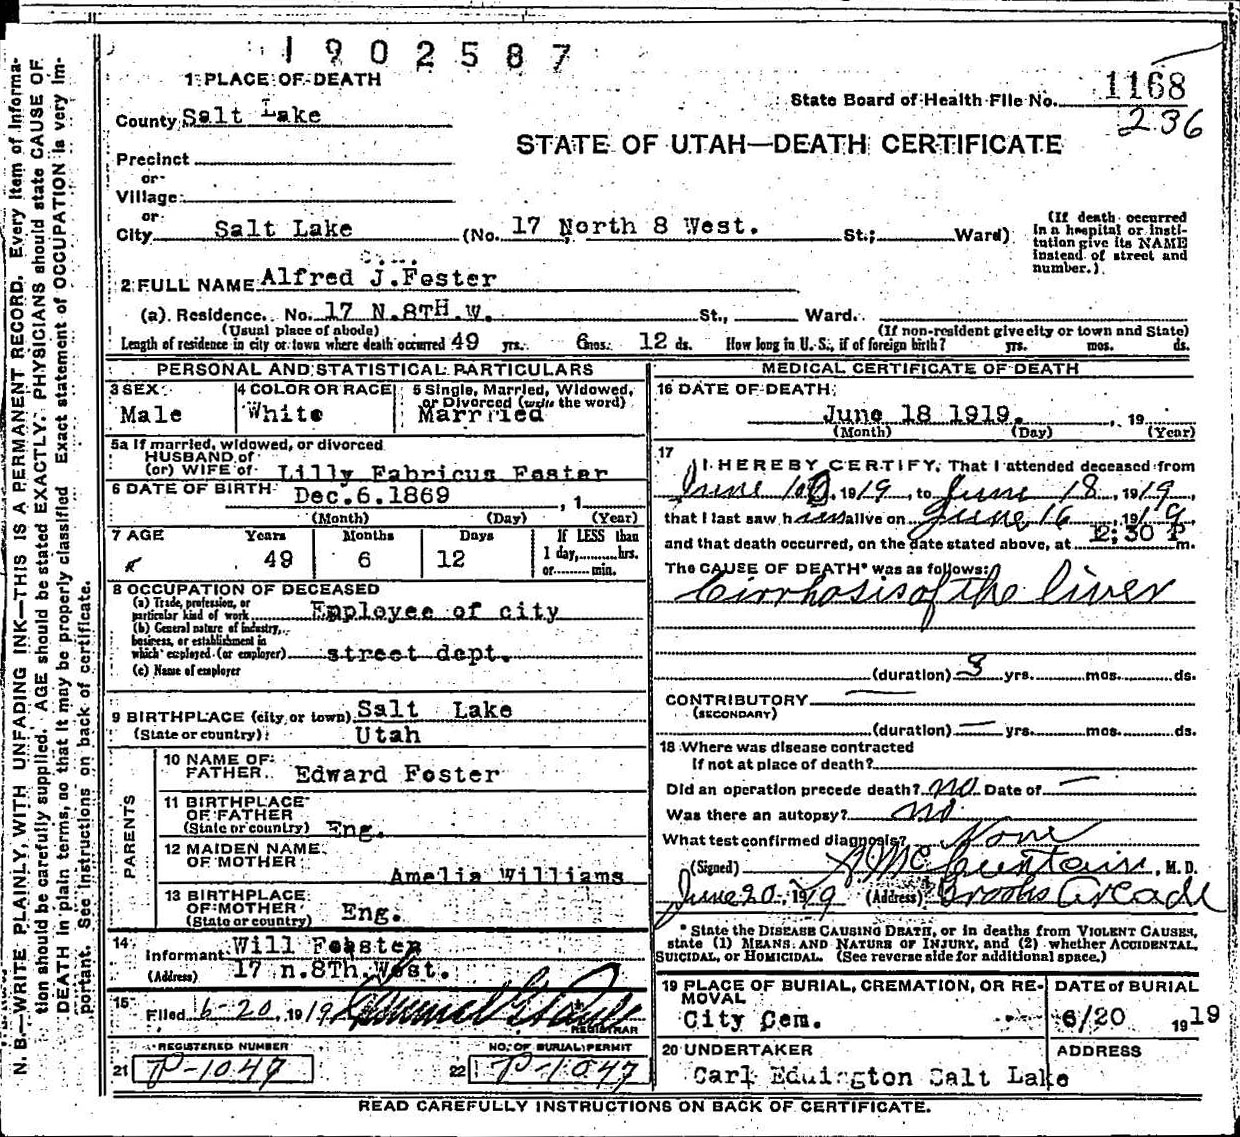 1902587
1 PLACE OF DEATH
State Board of Health File No. 1168
236
County Salt Lake
STATE OF UTAH—DEATH CERTIFICATE
Precinct
or
Village
or
City Salt Lake (No. 17 North 8 West. St.; Ward)
(If death occurred in a hospital or insti-
tution give its NAME
instead of street and
number.)
2 FULL NAME Alfred J. Foster
(a) Residence. No. 17 N. 8TH. W. St., Ward.
(Usual place of abode) (If non-resident give city or town and State)
Length of residence in city or town where death occurred 49 yrs. 6 mos. 12 ds. How long in U. S., if of foreign birth? yrs. mos. ds.
PERSONAL AND STATISTICAL PARTICULARS
3 SEX 4 COLOR OR RACE 5 Single, Married, Widowed,
or Divorced (write the word)
Male White Married
5a If married, widowed, or divorced
HUSBAND of
(or) WIFE of Lilly Fabricus Foster
6 DATE OF BIRTH Dec. 6. 1869 , 1
(Month) (Day) (Year)
7 AGE Years Months Days If LESS than
1 day, hrs.
or min.
49 6 12
8 OCCUPATION OF DECEASED
(a) Trade, profession, or
particular kind of work Employee of city
(b) General nature of industry,
business, or establishment in
which employed (or employer) street dept.
(c) Name of employer
9 BIRTHPLACE (city or town) Salt Lake
(State or country) Utah
PARENTS
10 NAME OF
FATHER Edward Foster
11 BIRTHPLACE
OF FATHER
(State or country) Eng.
12 MAIDEN NAME
OF MOTHER Amelia Williams
13 BIRTHPLACE
OF MOTHER
(State or country) Eng.
14 Informant Will Foster
(Address) 17 n. 8Th. West.
15 Filed 6-20, 1919
REGISTRAR
REGISTERED NUMBER NO. OF BURIAL PERMIT
21 P-1047 22 P-1047
MEDICAL CERTIFICATE OF DEATH
16 DATE OF DEATH
June 18 1919. , 19
(Month) (Day) (Year)
17 I HEREBY CERTIFY, That I attended deceased from
June 10, 1919, to June 18, 1919,
that I last saw him alive on June 16, 1919
and that death occurred, on the date stated above, at 12:30 P m.
The CAUSE OF DEATH* was as follows:
Cirrhosis of the liver
(duration) 3 yrs. mos. ds.
CONTRIBUTORY —
(SECONDARY)
(duration) — yrs. mos. ds.
18 Where was disease contracted
If not at place of death?
Did an operation precede death? no Date of —
Was there an autopsy? no
What test confirmed diagnosis? None
(Signed) M. D.
June 20, 1919 (Address) Brooks Arcade
* State the DISEASE CAUSING DEATH, or in deaths from VIOLENT CAUSES,
state (1) MEANS AND NATURE OF INJURY, and (2) whether ACCIDENTAL,
SUICIDAL, or HOMICIDAL. (See reverse side for additional space.)
19 PLACE OF BURIAL, CREMATION, OR RE-
MOVAL
City Cem.
DATE of BURIAL
6/20 1919
20 UNDERTAKER ADDRESS
Carl Edwington Salt Lake
READ CAREFULLY INSTRUCTIONS ON BACK OF CERTIFICATE.
N. B.—WRITE PLAINLY, WITH UNFADING INK—THIS IS A PERMANENT RECORD. Every item of informa-
tion should be carefully supplied. AGE should be stated EXACTLY. PHYSICIANS should state CAUSE OF
DEATH in plain terms, so that it may be properly classified. Exact statement of OCCUPATION is very im-
portant. See instructions on back of certificate.